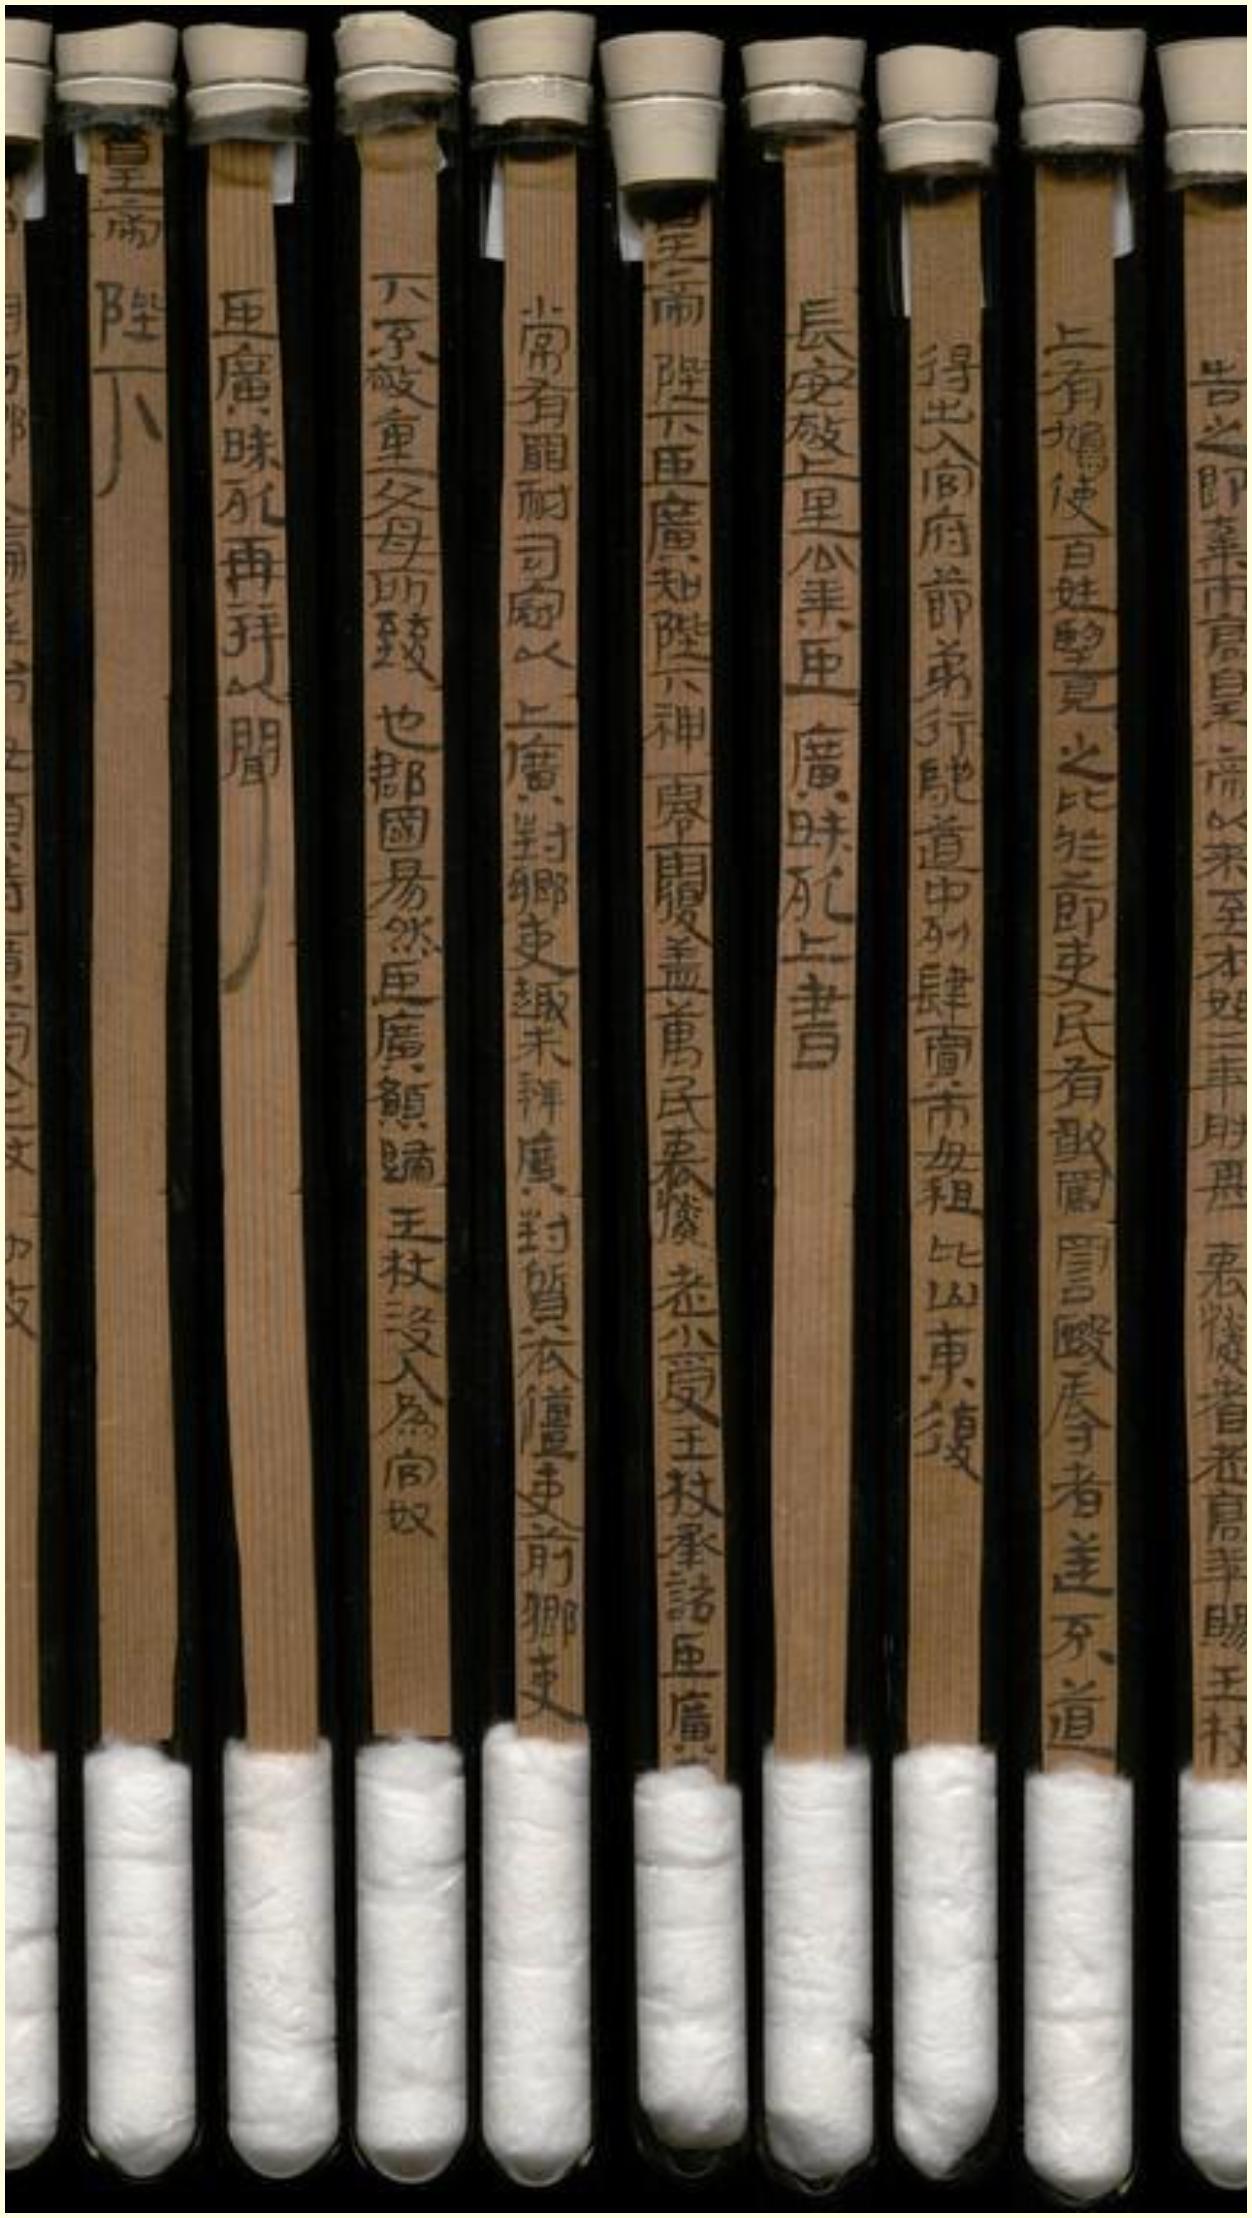 告之即棄市高皇帝以來至本始二年朕甚哀憐耆老高年賜王杖
上有鳩使百姓望見之比於節吏民有敢罵詈毆辱者逆不道
得出入官府節弟行馳道中列肆賈市毋租比山東復
長安敬上里公乘臣廣昧死上書
皇帝陛下臣廣知陛下神零覆蓋萬民哀憐老小受王杖承詔臣廣
常有罪耐司寇以上廣對鄉吏趣未辨廣對質衣彊吏前鄉吏
下不敬重父母所致也郡國易然臣廣願歸王杖沒入為官奴
臣廣昧死再拜以聞
皇帝陛下